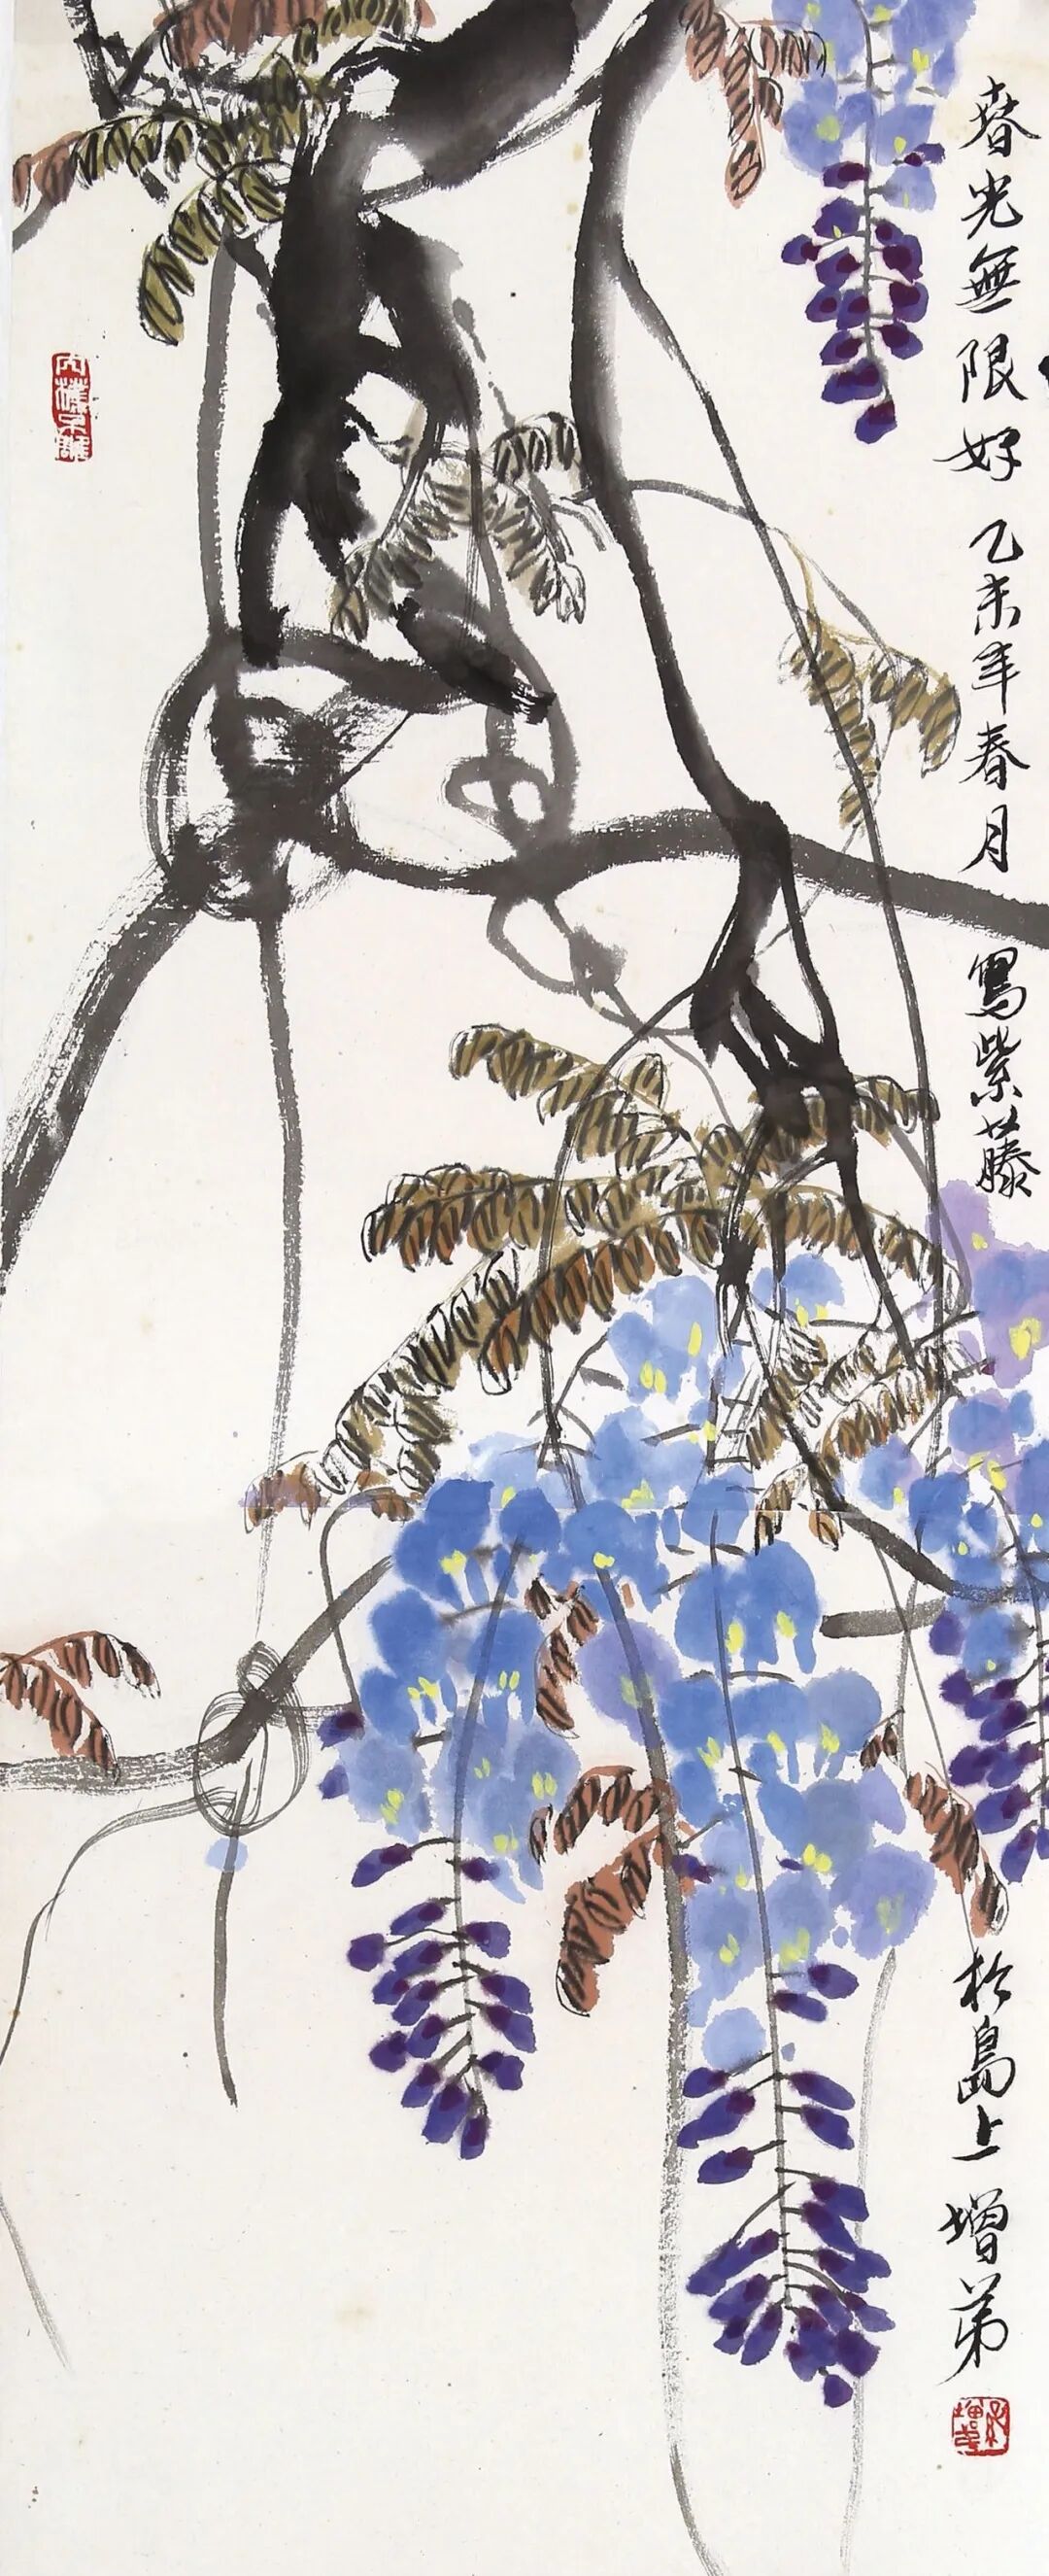 春光無限好 乙未年春月 寫紫藤 於島上 增弟